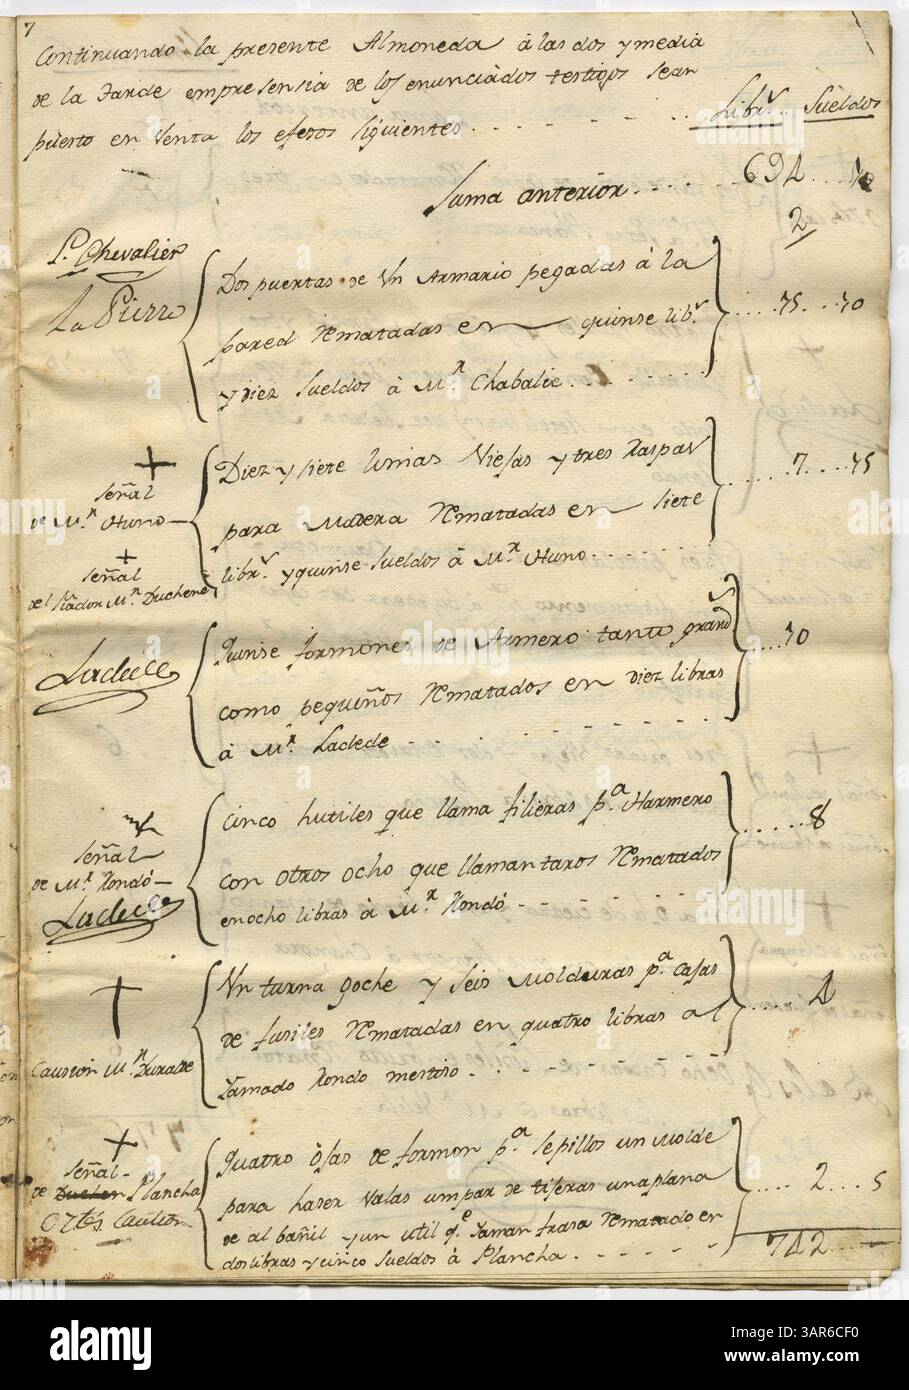 7
Continuando la presente Almoneda á las dos y media
de la tarde empresensia de los enunciádos testigos seran
puesto en Venta los efesos siguientes . . . . . . . Libr.s Sueldos
Suma anterior . . . . . 694 . . . 10
2
P. Chevalier
La Pierre
Dos puertas de Un Armario pegadas á la
pared rematadas en quinse lib.s . . . . 15 . . . 10
y diez sueldos á M.r Chabalie . . . . . .
Señal
de M.r Huno
Señal
del fiador M.r Duchene
Diez y siete limas Viejas y tres Raspas
para Madera rematadas en siete . . . . . 7 . . . . 15
libr.s y quinse sueldos á M.r Huno . . . . .
Ladede
Quinse formones de Armero tanto grand.s
como pequeños rematados en diez libras . . . . 10
á M.r Ladede . . . . . . . . .
Señal
de M.r Rondó
Ladede
Cinco hutiles que llama filieras p.a Harmero
con otros ocho que llaman taros rematados . . . . . 8
en ocho libras á M.r Rondó . . . . . . .
Caucion M.r Durade
Un turna goche y seis molduras p.a casas
de fusiles rematadas en quatro libras al . . . . 4
llamado Rondo mestiso . . . . . . .
Señal
de Plancha
Ortés Caucion
Quatro ojas de formon p.a sepillos un molde
para haser Valas umpar de tiseras una plana . . . . 2 . . . 5
de al bañil y un util q.e llaman frasa rematado en
dos libras y cinco sueldos á Plancha . . . . . . .
742 . . . —
alamy
Image ID: 3AR6CF0
www.alamy.com